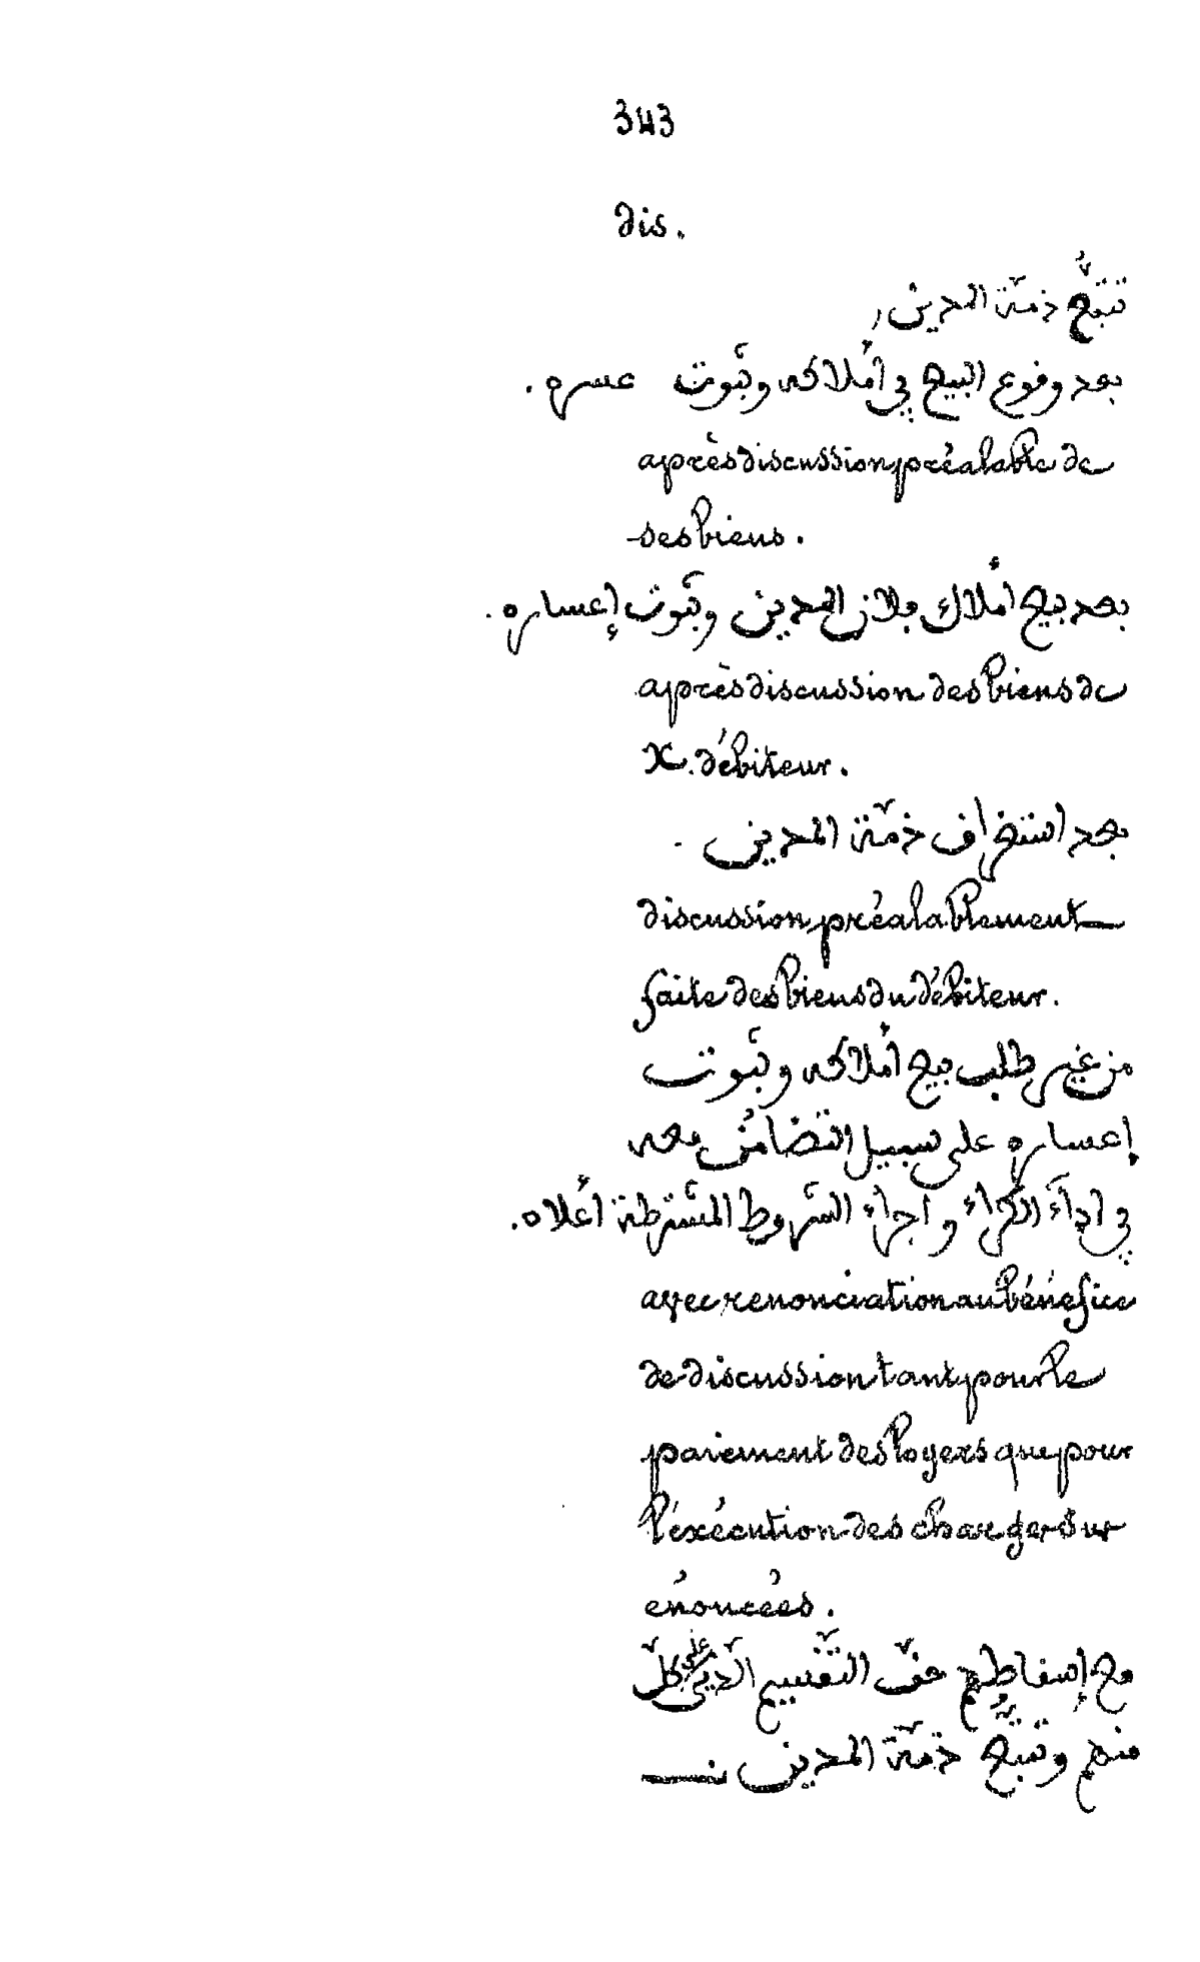 343
dis.
تتبّع ذمّة المدين
بعد وقوع البيع في أملاكه وثبوت عسره.
après discussion préalable de
ses biens.
بعد بيع أملاك فلان المدين وثبوت إعساره.
après discussion des biens de
X. débiteur.
بعد استغراق ذمّة المدين.
discussion préalablement
faite des biens du débiteur.
من غير طلب بيع أملاكه وثبوت
إعساره على سبيل التضامن معه
في اداء الكراء واجراء الشروط المشترطة أعلاه.
avec renonciation au bénéfice
de discussion tant pour le
paiement des loyers que pour
l'éxécution des charges sur
énoncées.
مع إسقاطهم حقّ التّقسيم الّديْن على كلّ
منهم وتتبّع ذمّة المدين